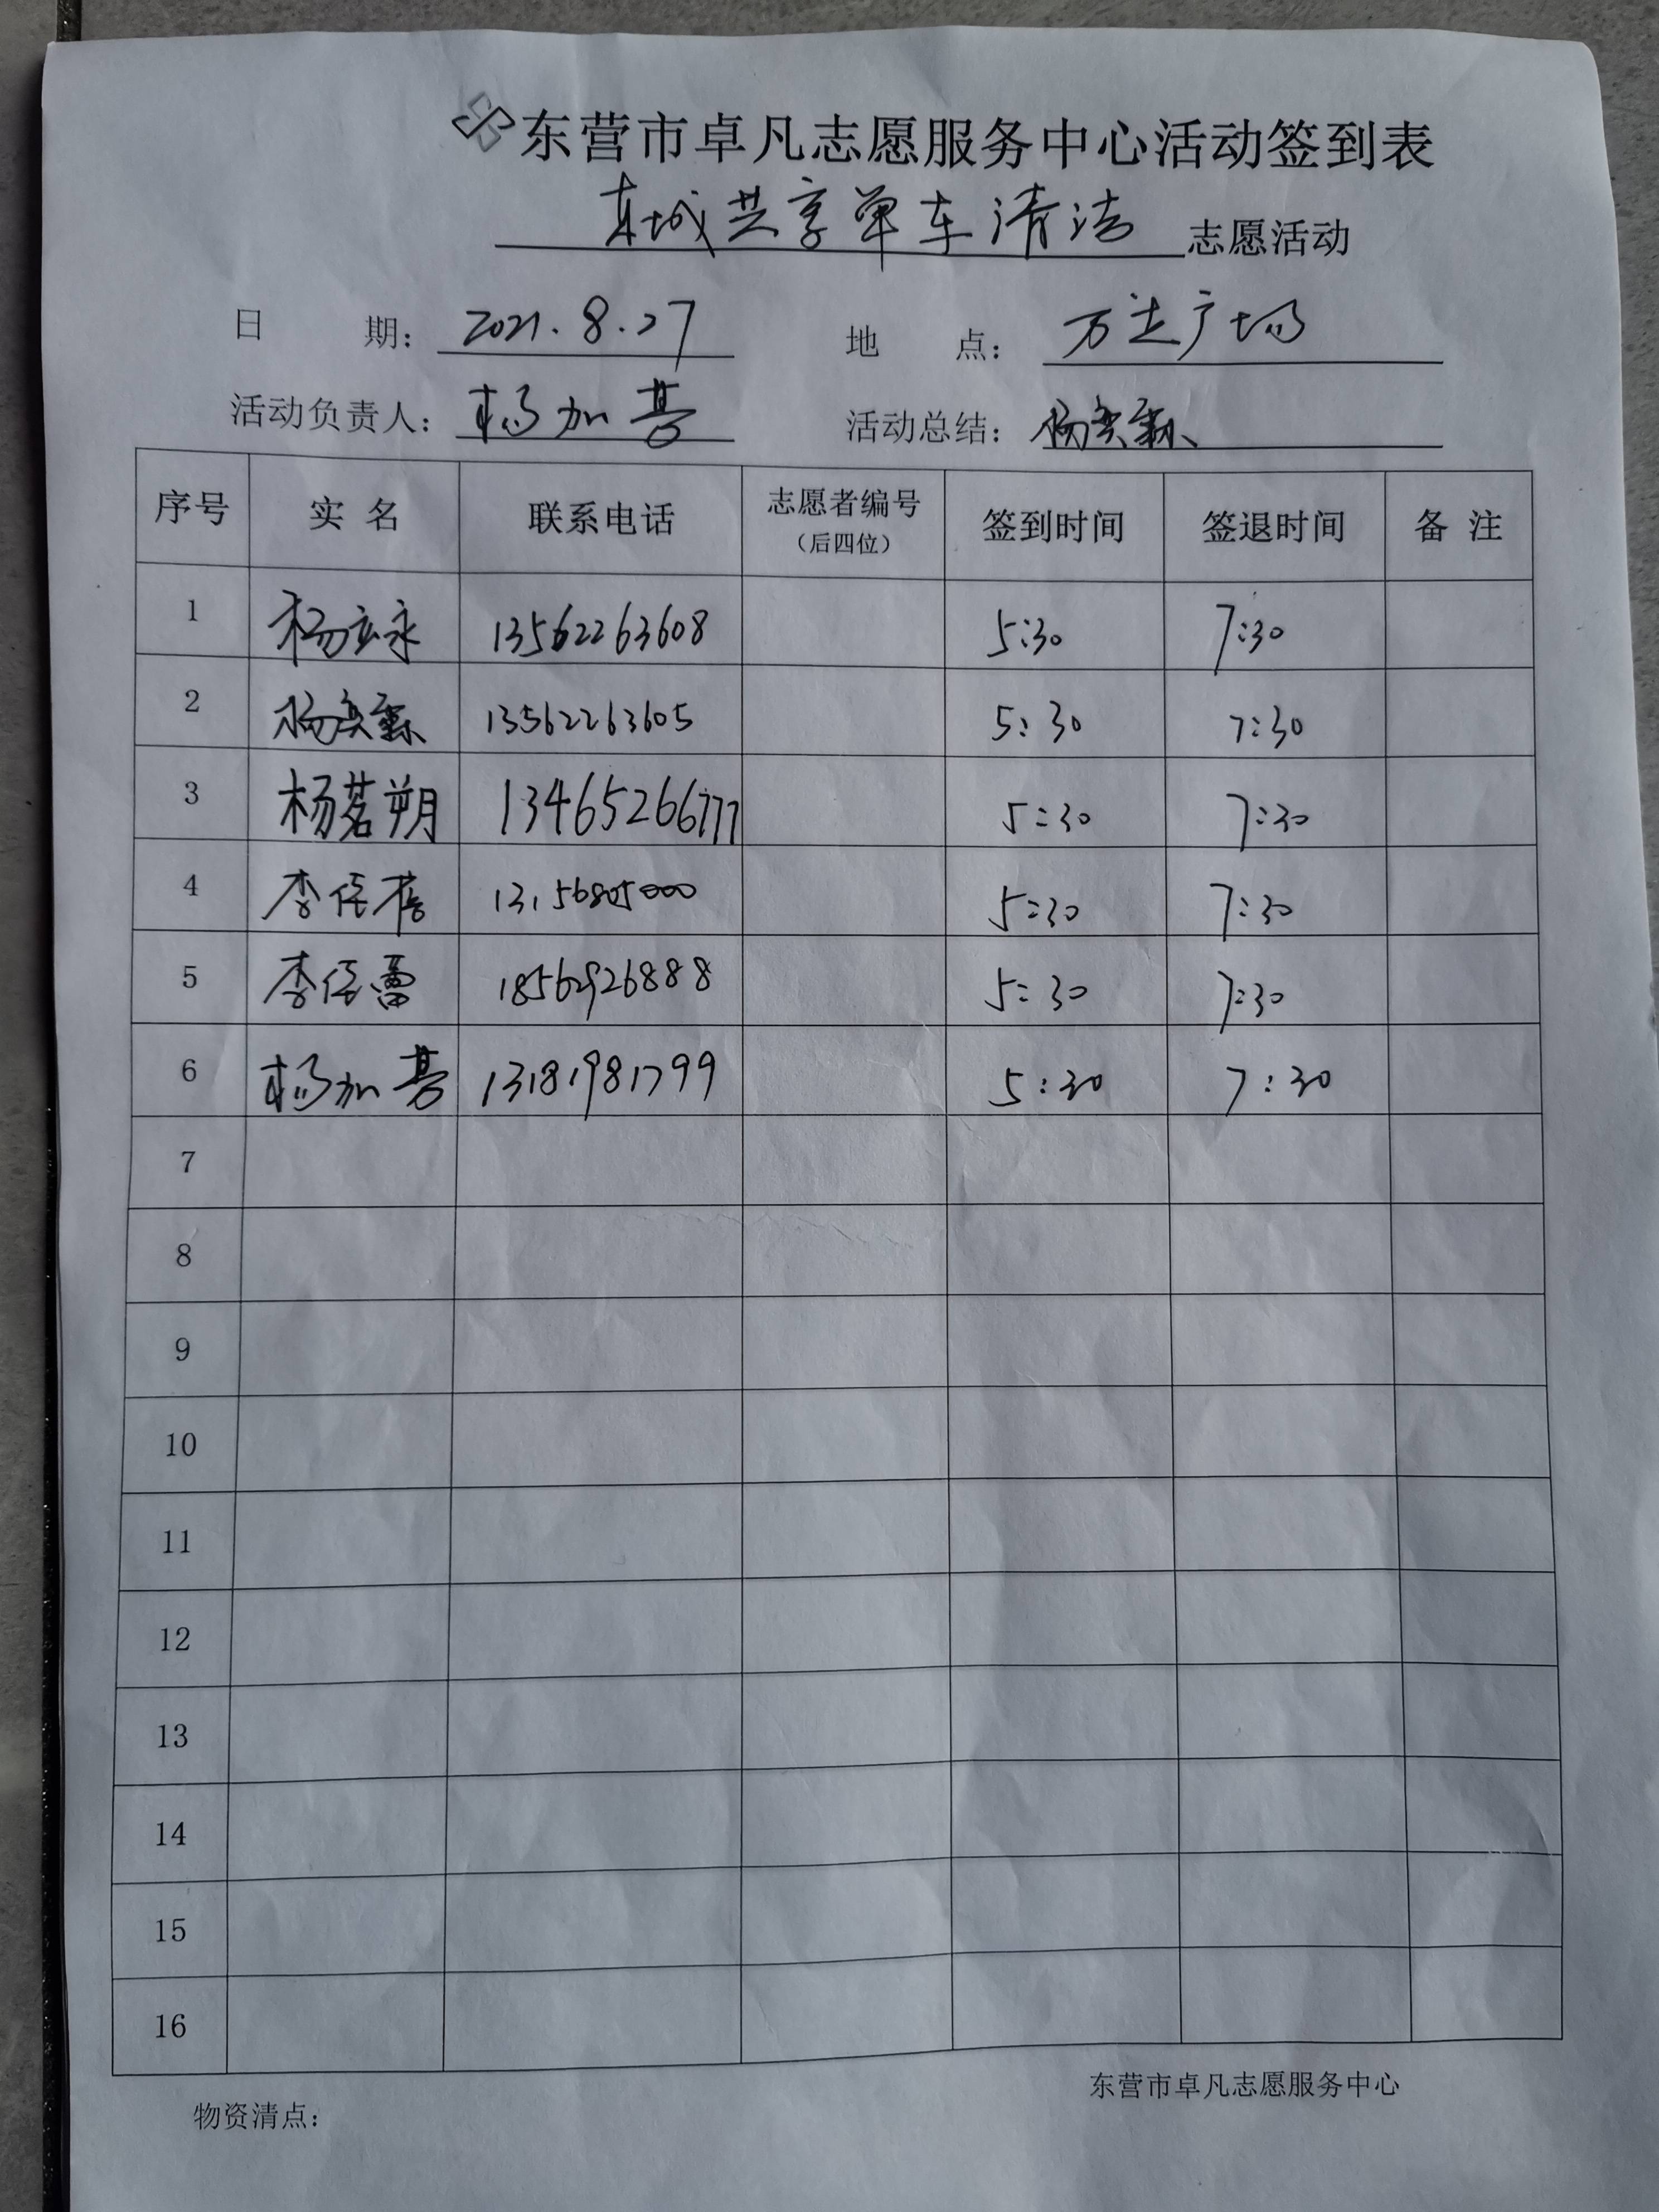 东营市卓凡志愿服务中心活动签到表
东城共享单车清洁 志愿活动
日 期: 2021.8.27 地 点: 万达广场
活动负责人: 杨加 活动总结: 杨
序号 实 名 联系电话 志愿者编号(后四位) 签到时间 签退时间 备 注
1 杨立永 13562263608 5:30 7:30
2 杨 13562263605 5:30 7:30
3 杨茗朔 13465266777 5:30 7:30
4 李 5:30 7:30
5 李 18562926888 5:30 7:30
6 杨加 13181981799 5:30 7:30
7
8
9
10
11
12
13
14
15
16
东营市卓凡志愿服务中心
物资清点: